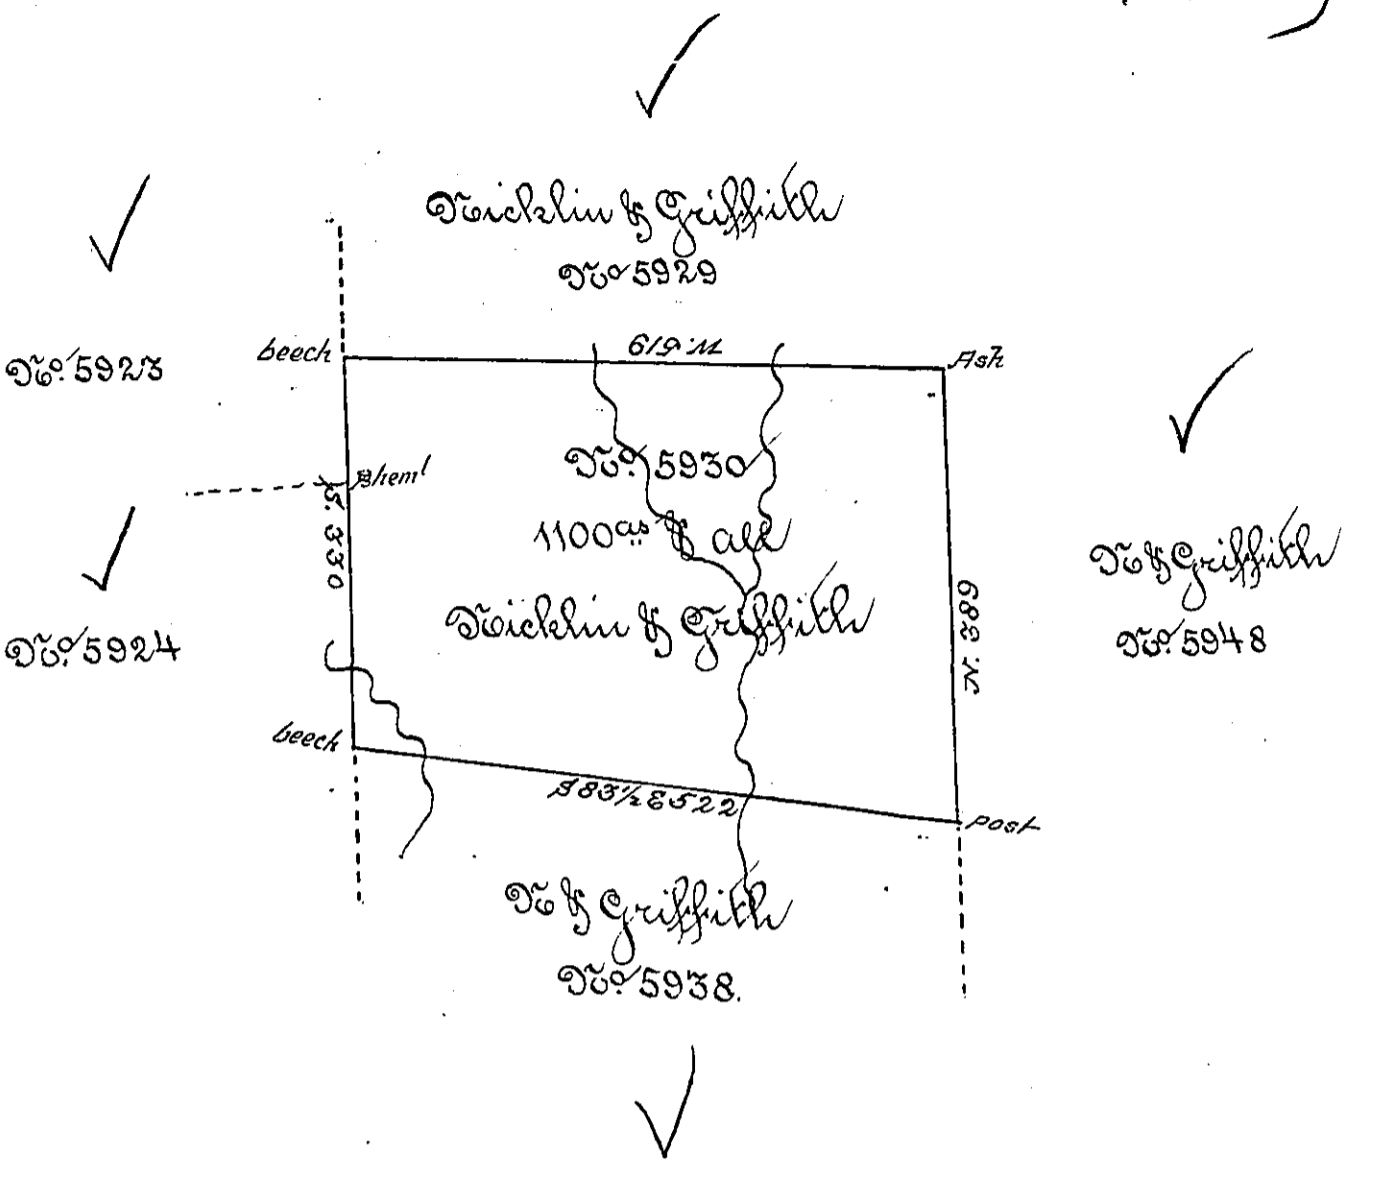 Nicklin & Griffith
No. 5929
No. 5923
beech
W. 619
Ash
No. 5930
S. 330
1100 as & all
Nicklin & Griffith
N & Griffith
No. 5948
N. 389
No. 5924
beech
S 83½ E 522
post
N & Griffith
No. 5938.